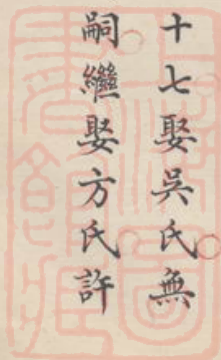 十七娶吳氏無
嗣繼娶方氏許